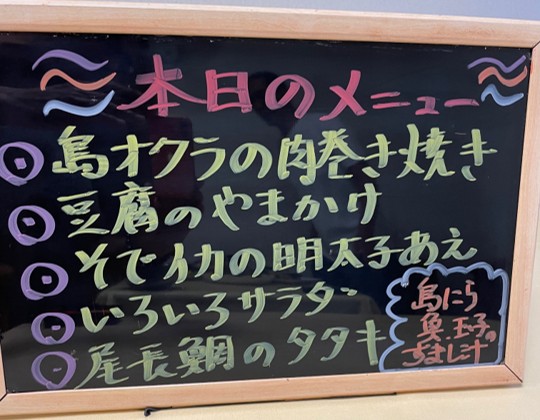 本日のメニュー
島オクラの肉巻き焼き
豆腐のやまかけ
そでイカの明太子あえ
いろいろサラダ
尾長鯛のタタキ
島にら
玉子の
すまし汁